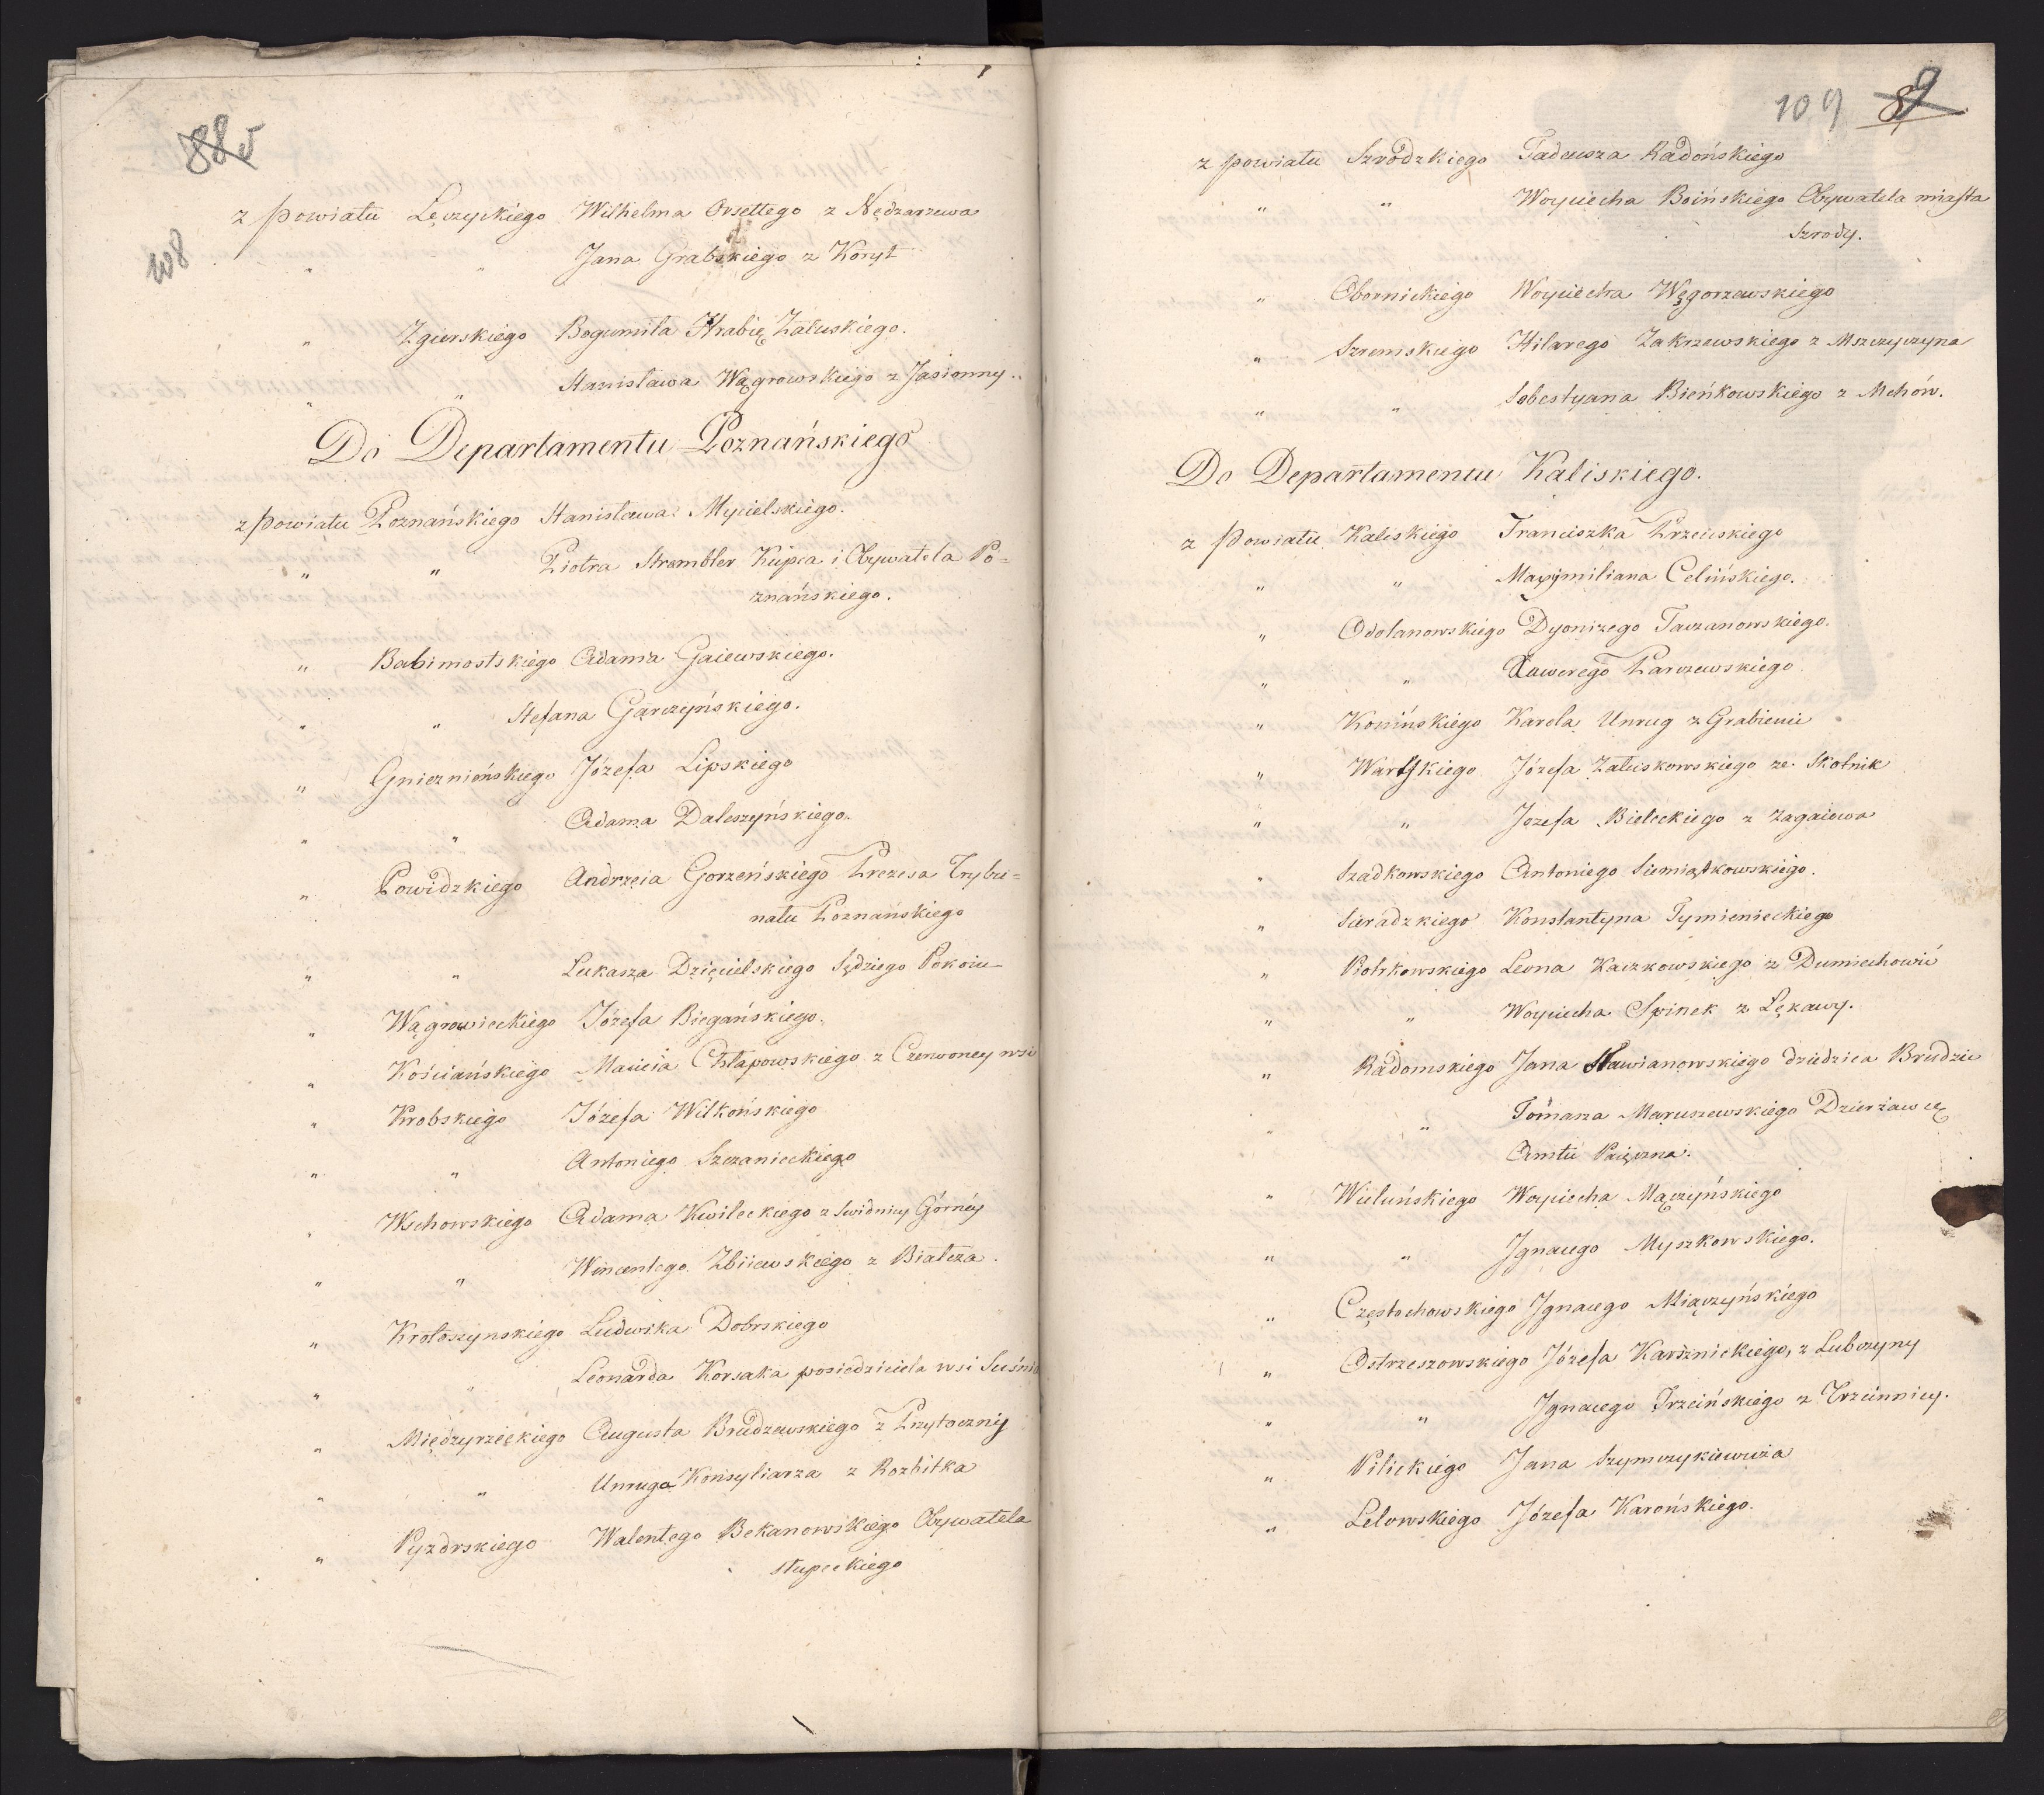 88
108
z powiatu Łęczyckiego Wilhelma Orsettego z Nędzarzewa
" " Jana Grabskiego z Koryt
" Zgierskiego Bogumiła Hrabię Załuskiego.
" " Stanisława Wągrowskiego z Jasionny.
Do Departamentu Poznańskiego
z powiatu Poznańskiego Stanisława Mycielskiego.
" " Piotra Strembler Kupca i Obywatela Po=
znańskiego.
" Babimostskiego Adama Gaiewskiego.
" " Stefana Garczyńskiego.
" Gnieznieńskiego Józefa Lipskiego
" " Adama Daleszyńskiego.
" Powidzkiego Andrzeia Gorzeńskiego Prezesa Trybu=
nału Poznańskiego
" " Łukasza Dzięcielskiego Sędziego Pokoiu
" Wągrowieckiego Józefa Biegańskiego.
" Kościańskiego Macieia Chłapowskiego z Czerwoney wsi
" Krobskiego Józefa Wilkońskiego
" " Antoniego Szczanieckiego
" Wschowskiego Adama Kwileckiego z Swidnicy Górnéy
" " Wincentego Zbiiewskiego z Białcza.
" Krotoszynskiego Ludwika Dobrskiego
" " Leonarda Korsaka posiedziciela wsi Suśnia
" Międzyrzéckiego Augusta Brudzewskiego z Przytoczny
" " Unruga Konsyliarza z Rozbitka
" Pyzdrskiego Walentego Bekanowskiego Obywatela
słupeckiego
109 89
z powiatu Szrodzkiego Tadeusza Radońskiego
" " Woyciecha Boińskiego Obywatela miasta
Szrody.
" Obornickiego Woyciecha Węgorzewskiego
" Szremskiego Hilarego Zakrzewskiego z Mszczyczyna
" " Sobestyana Bieńkowskiego z Mchów.
Do Departamentu Kaliskiego.
z powiatu Kaliskiego Franciszka
" " Maxymiliana Celińskiego.
" Odolanowskiego Dyonizego Taczanowskiego.
" " Xawerego Parczewskiego
" Konińskiego Karola Unrug z Grabienic
" Wartskiego Józefa Załuskowskiego ze Skotnik
" " Jozefa Bieleckiego z Zagaiewa
" Szadkowskiego Antoniego Siemiątkowskiego.
" Sieradzkiego Konstantyna Tymienieckiego
" Piotrkowskiego Leona Kaczkowskiego z Dumiechowić
" " Woyciecha Spinek z Łękawy.
" Radomskiego Jana Sławianowskiego dziedzica Brudzic
" " Tomasza Maruszewskiego Dzierżawcę
Amtu Paięczna.
" Wieluńskiego Woyciecha Mączyńskiego
" " Jgnacego Myszkowskiego.
" Częstochowskiego Jgnacego Miączyńskiego
" Ostrzeszowskiego Józefa Karśznickiego, z Lubczyny
" " Jgnacego Trzcińskiego z Trzcinnicy.
" Pilickiego Jana Szymczykiewicza
" Lelowskiego Józefa Karońskiego.